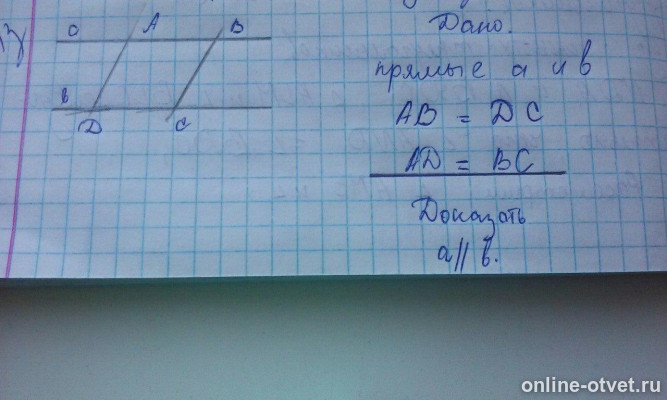 3)
a A B
в
D C
Дано.
прямые а и в
AB = DC
AD = BC
Доказать
a || в.
online-otvet.ru